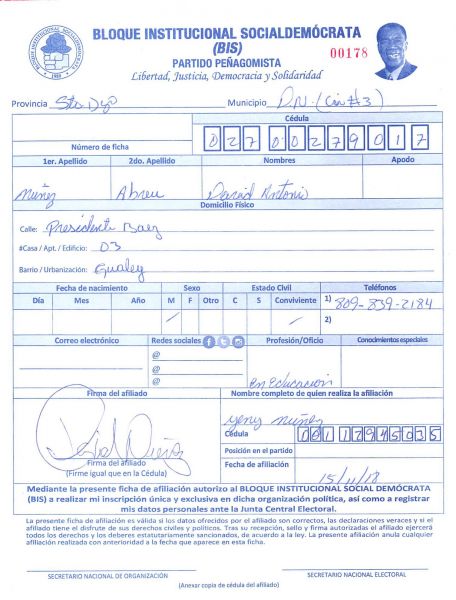 BLOQUE INSTITUCIONAL SOCIALDEMÓCRATA
(BIS)
PARTIDO PEÑAGOMISTA
00178
Libertad, Justicia, Democracia y Solidaridad
Provincia Sto Dgo Municipio D.N. (Cir #3)
Cédula
Número de ficha 027 0027901 7
1er. Apellido 2do. Apellido Nombres Apodo
Nuñez Abreu David Antonio
Domicilio Físico
Calle: Presidente Baez
#Casa / Apt. / Edificio: 03
Barrio / Urbanización: Gualey
Fecha de nacimiento Sexo Estado Civil Teléfonos
Día Mes Año M F Otro C S Conviviente 1) 809-839-2184
2)
Correo electrónico Redes sociales Profesión/Oficio Conocimientos especiales
@
@
@ en Educacion
Firma del afiliado Nombre completo de quien realiza la afiliación
yeny nuñez
Cédula 001 1794503 5
Posición en el partido
Firma del afiliado
(Firme igual que en la Cédula)
Fecha de afiliación 15/11/18
Mediante la presente ficha de afiliación autorizo al BLOQUE INSTITUCIONAL SOCIAL DEMÓCRATA
(BIS) a realizar mi inscripción única y exclusiva en dicha organización política, así como a registrar
mis datos personales ante la Junta Central Electoral.
La presente ficha de afiliación es válida si los datos ofrecidos por el afiliado son correctos, las declaraciones veraces y si el
afiliado tiene el disfrute de sus derechos civiles y políticos. Tras su recepción, sello y firma autorizados el afiliado ejercerá
todos los derechos y los deberes estatutariamente sancionados, de acuerdo a la ley. La presente afiliación anula cualquier
afiliación realizada con anterioridad a la fecha que aparece en esta ficha.
SECRETARIO NACIONAL DE ORGANIZACIÓN SECRETARIO NACIONAL ELECTORAL
(Anexar copia de cédula del afiliado)